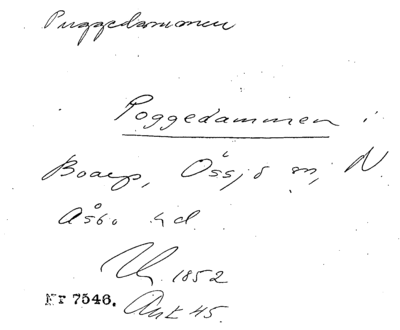 Puggedammen
Poggedammen i
Boarp, Össjö sn, N.
Åsbo hd
1852
Nr 7546. Ank 45.